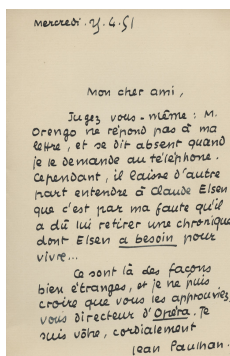 Mercredi. 25.4.51
Mon cher ami,
Jugez vous-même : M.
Orengo ne répond pas à ma
lettre, et se dit absent quand
je le demande au téléphone.
Cependant, il laisse d'autre
part entendre à Claude Elsen
que c'est par ma faute qu'il
a dû lui retirer une chronique
dont Elsen a besoin pour
vivre...
Ce sont là des façons
bien étranges, et je ne puis
croire que vous les approuviez,
vous directeur d'Opéra. Je
suis vôtre, cordialement
Jean Paulhan.